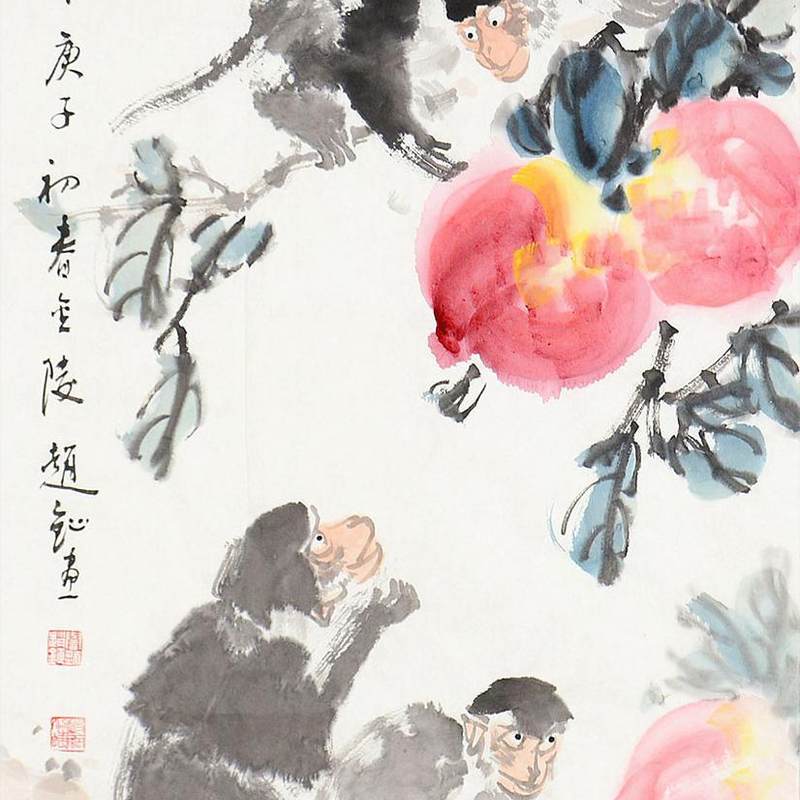 庚子初春金陵趙鉞畫